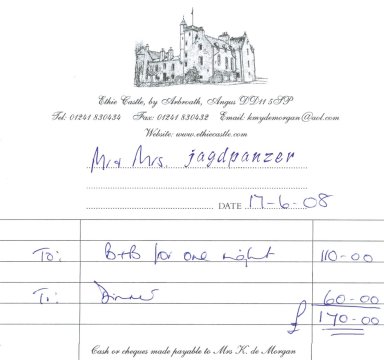 Ethie Castle, by Arbroath, Angus DD11 5SP
Tel: 01241 830434 Fax: 01241 830432 Email: kmydemorgan@aol.com
Website: www.ethiecastle.com
Mr & Mrs. jagdpanzer
DATE 17-6-08
To: B+B for one night 110-00
To: Dinner 60-00
£ 170-00
Cash or cheques made payable to Mrs K. de Morgan